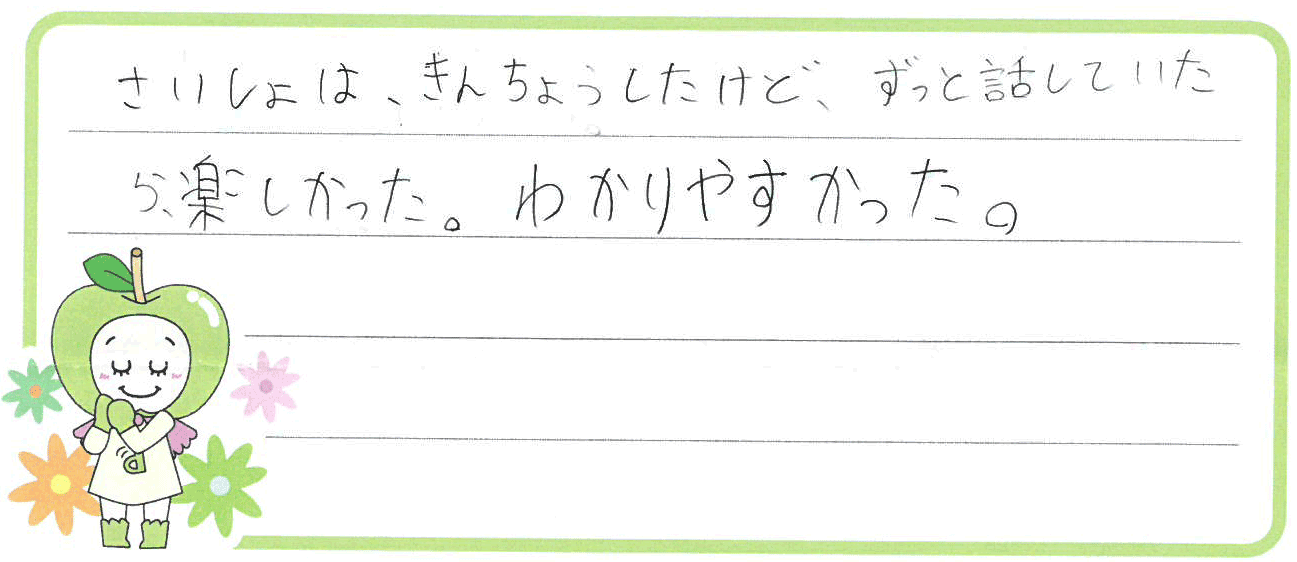 さいしょは、きんちょうしたけど、ずっと話していた
ら、楽しかった。わかりやすかった。